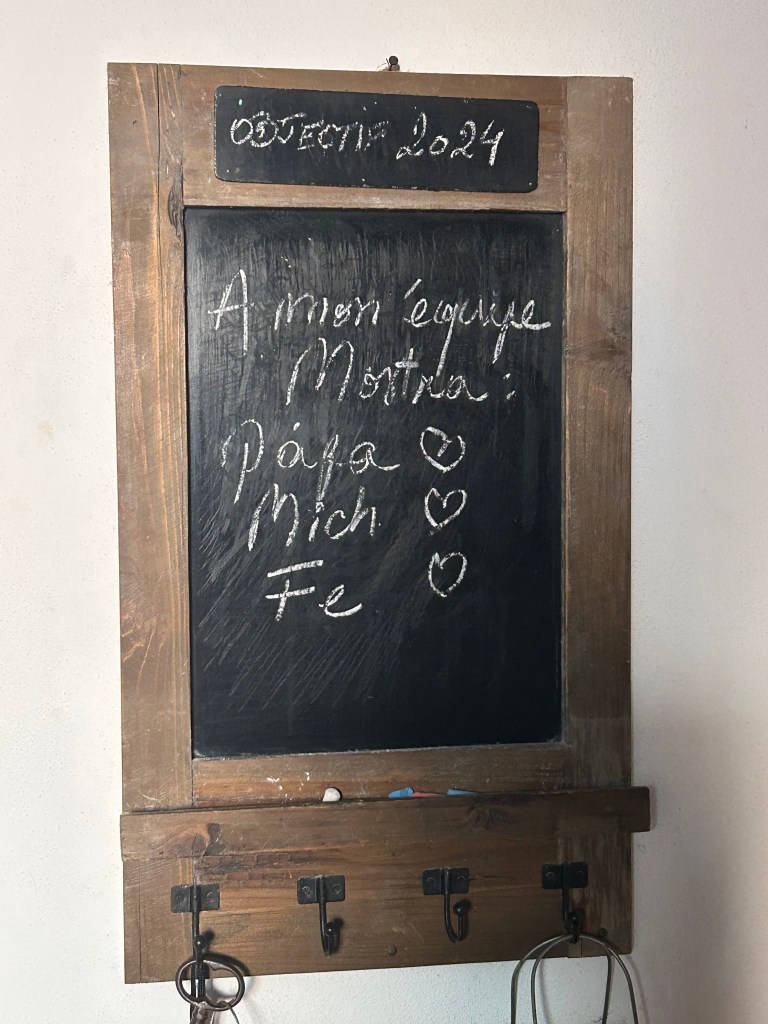 OBJECTIF 2024
A mon équipe
Mostra :
Pápa ♡
Mich ♡
Fe ♡